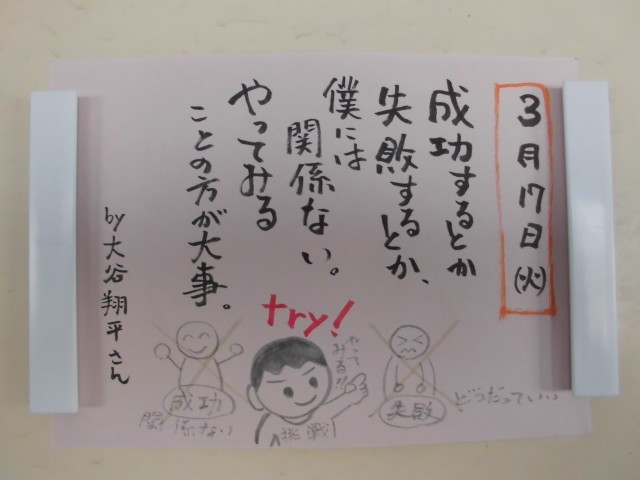 3月17日(火)
成功するとか
失敗するとか、
僕には
関係ない。
やってみる
ことの方が大事。
by 大谷翔平さん
try!
やって
みる!!
成功
関係ない
挑戦
失敗
どっだっていい